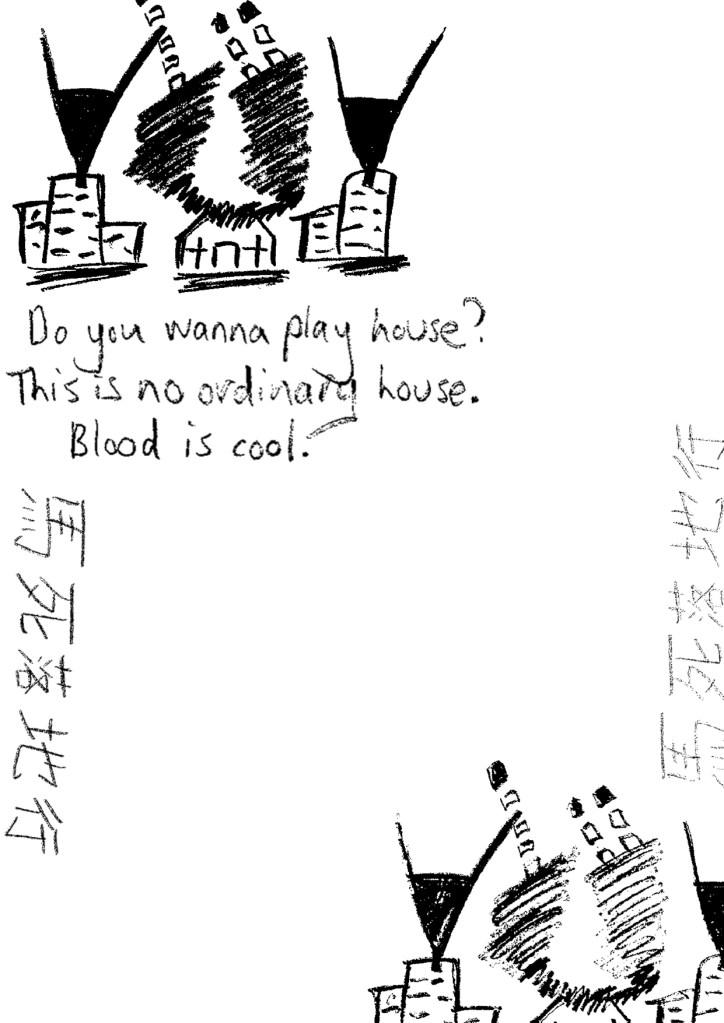 Do you wanna play house?
This is no ordinary house.
Blood is cool.
馬死落地行
馬死落地行